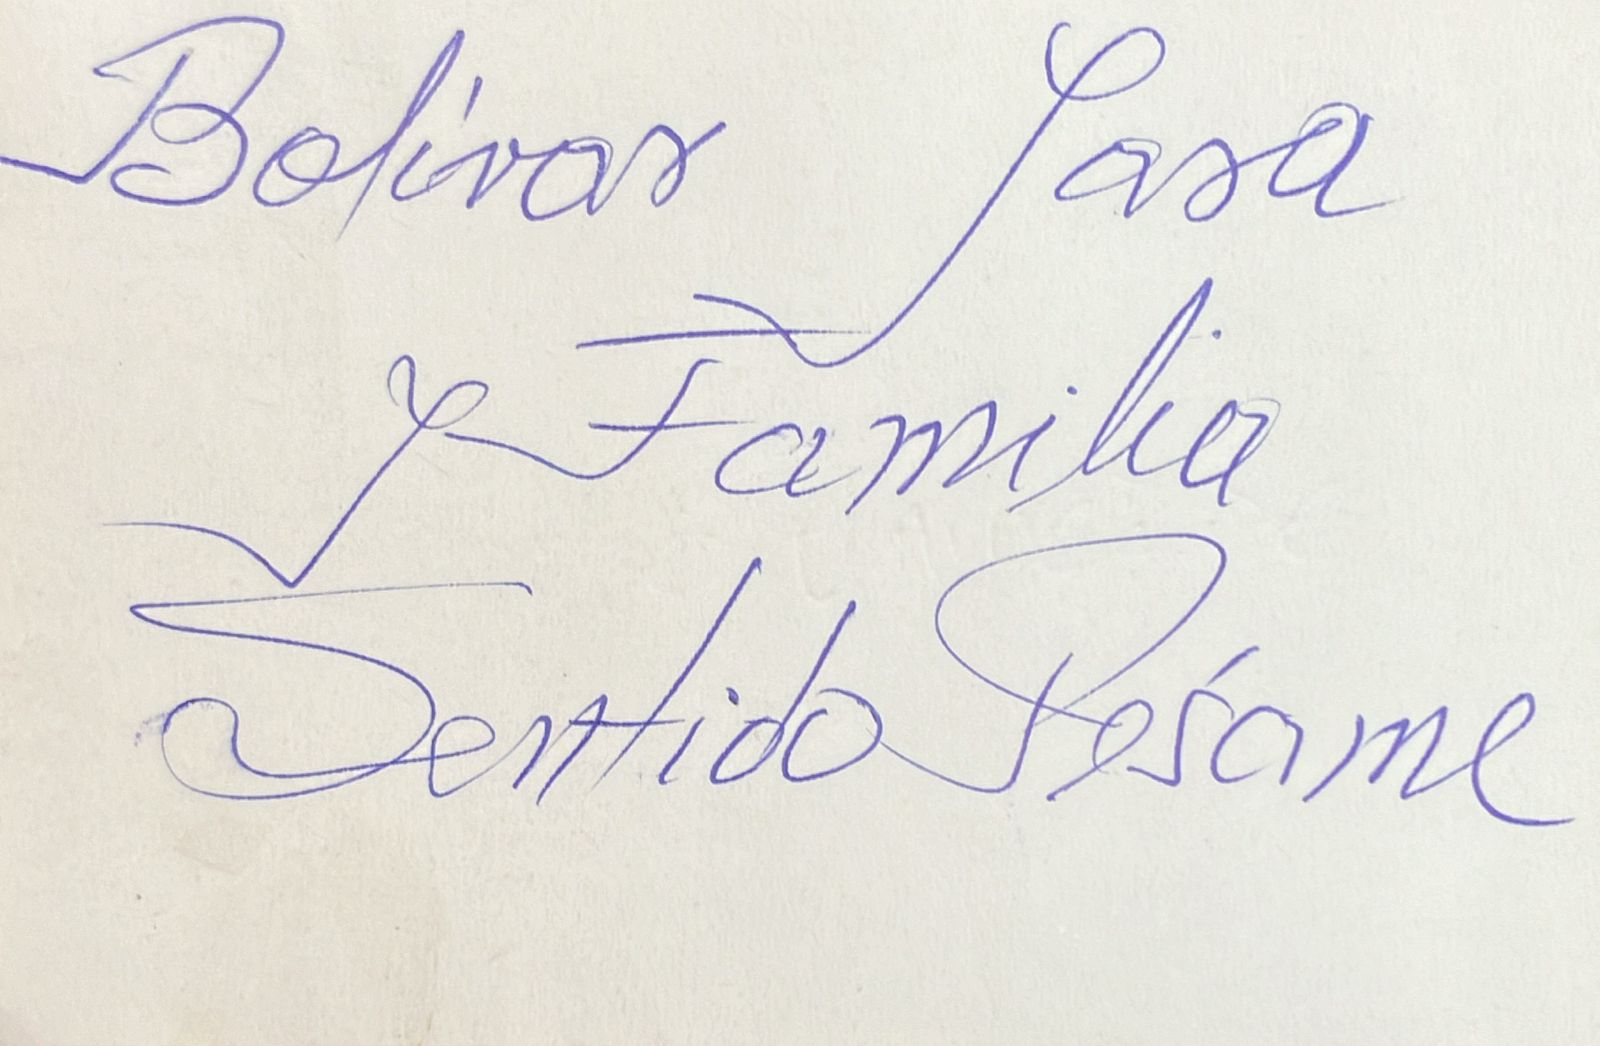 Bolívar Lara
y Familia
Sentido Pésame